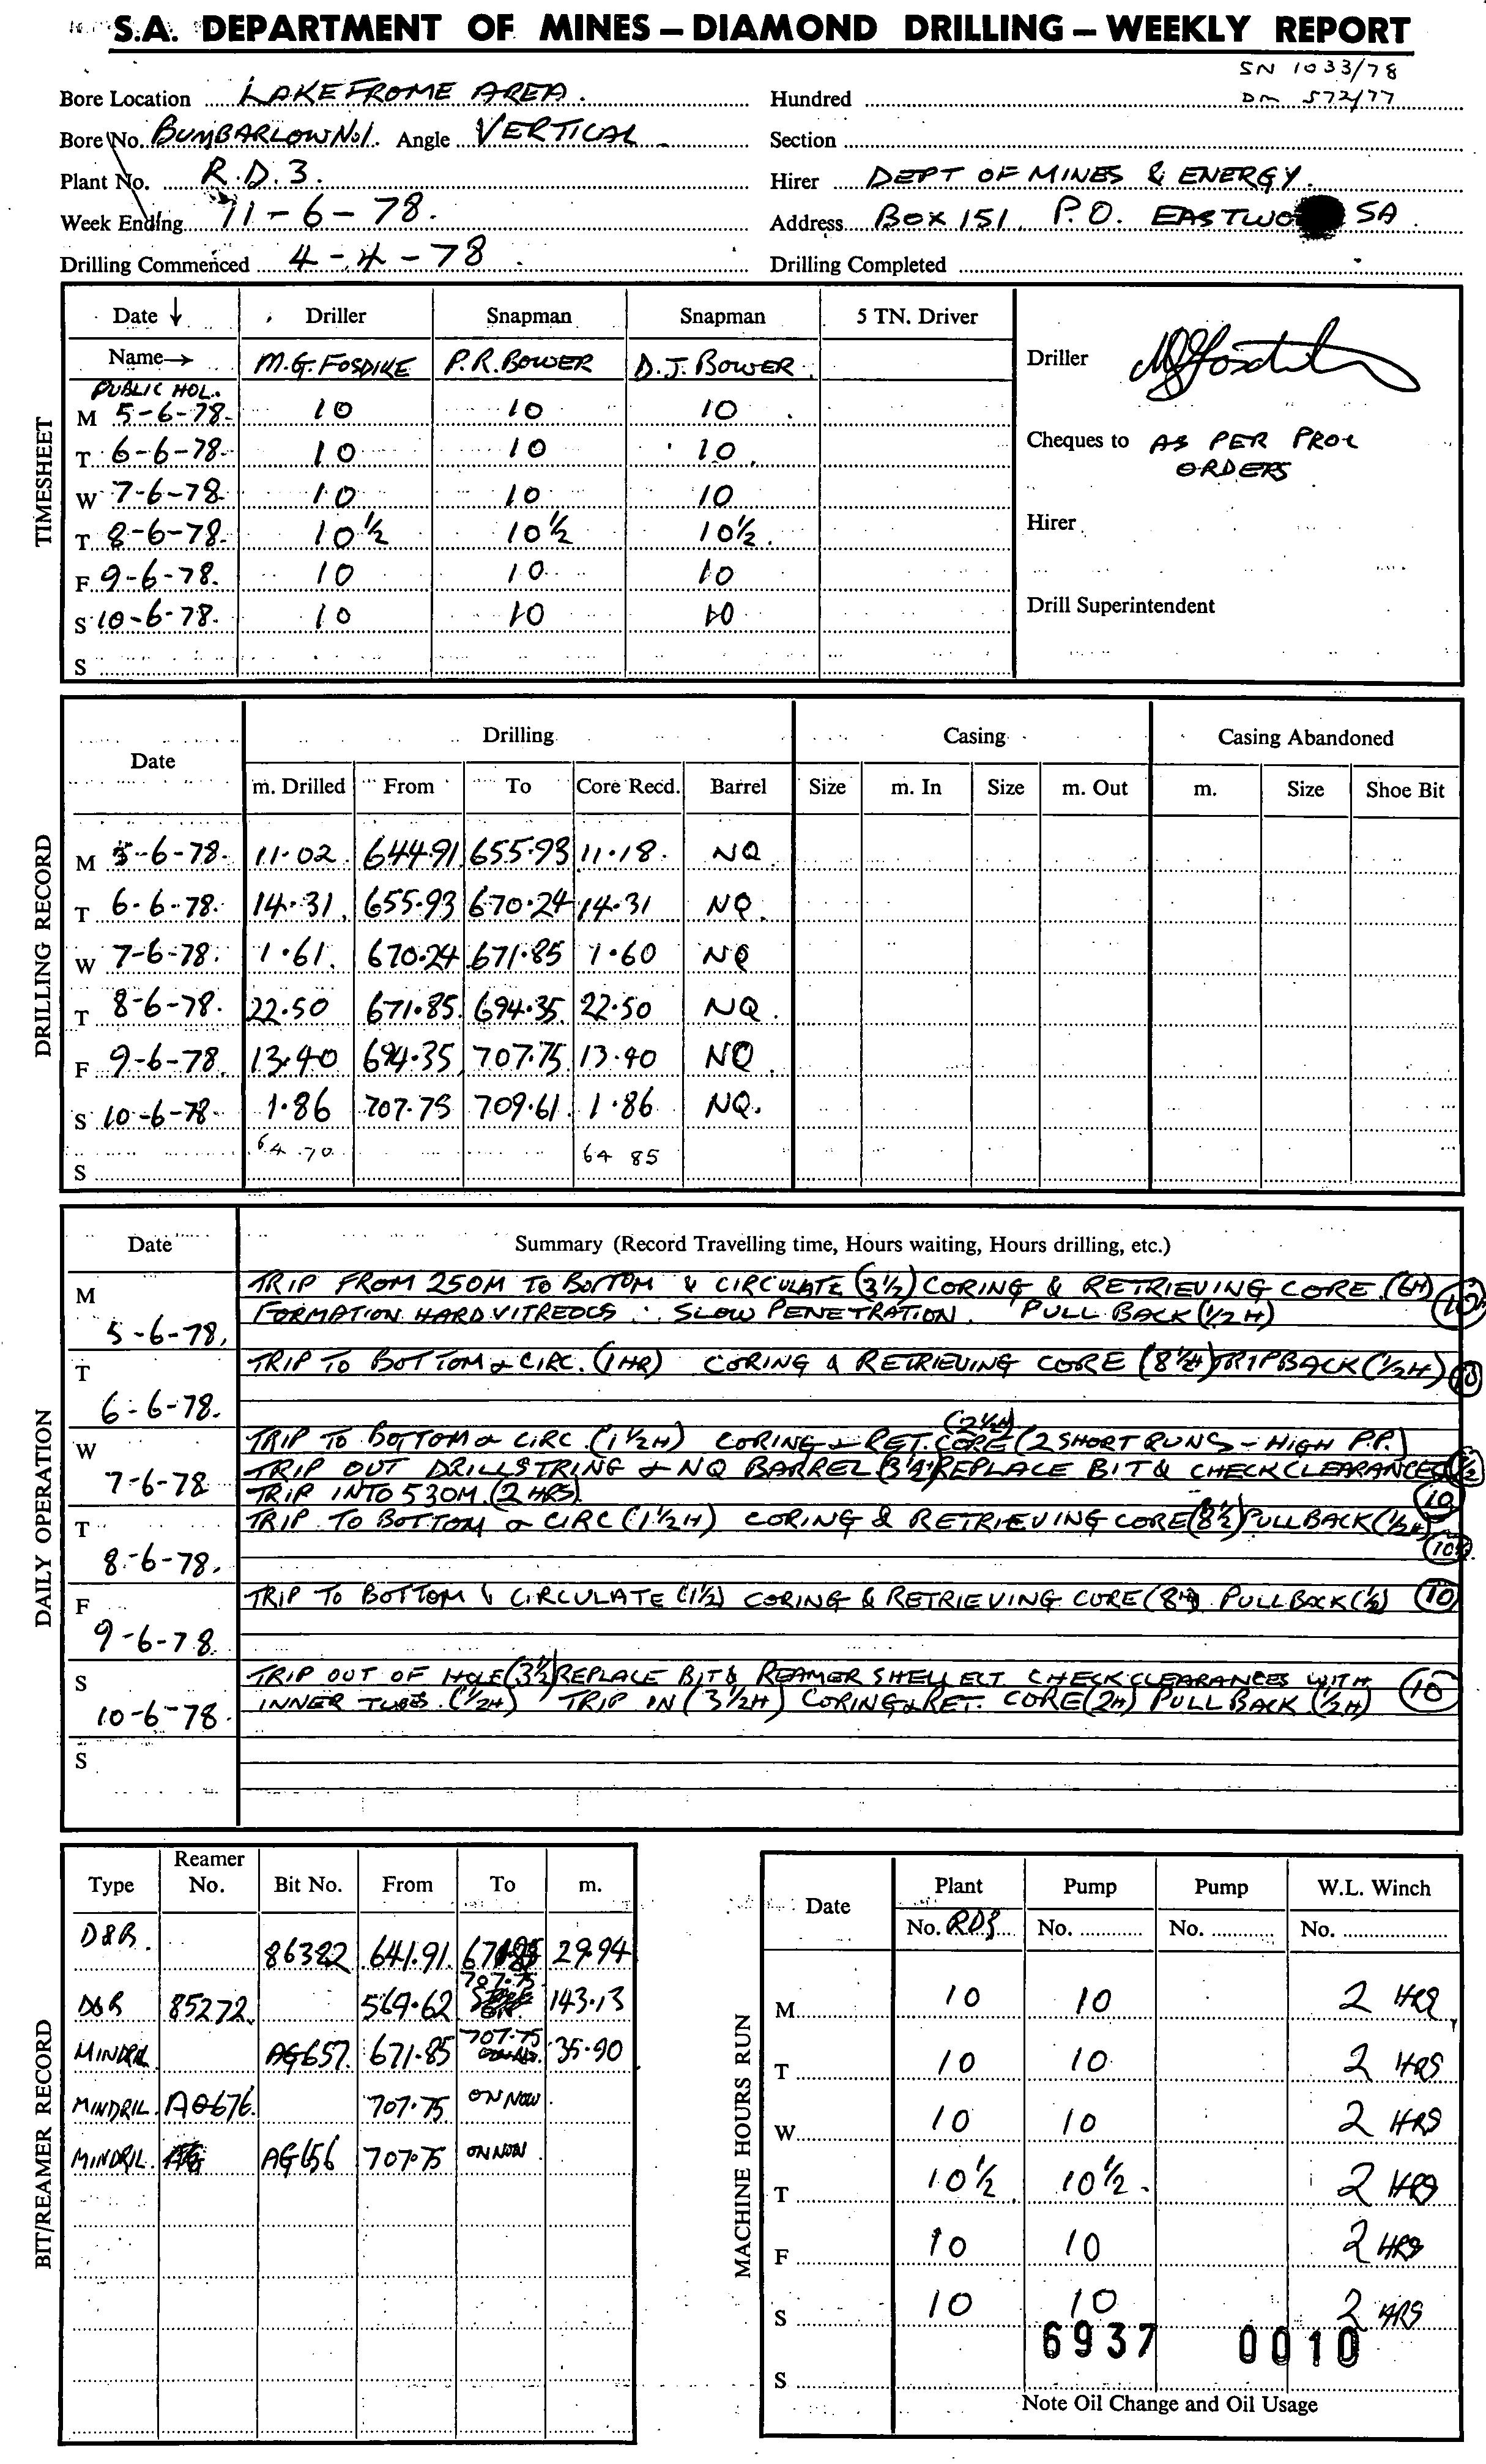 S.A. DEPARTMENT OF MINES – DIAMOND DRILLING – WEEKLY REPORT
SN 1033/78
DM 572/77
Bore Location LAKE FROME AREA. Hundred
Bore No. BUMBARLOW No1. Angle VERTICAL Section
Plant No. R.D.3. Hirer DEPT OF MINES & ENERGY.
Week Ending 11-6-78. Address BOX 151, P.O. EASTWO SA.
Drilling Commenced 4-4-78. Drilling Completed
TIMESHEET
Date ↓ Driller Snapman Snapman 5 TN. Driver
Name→ M.G. FOSDIKE P.R. BOWER D.J. BOWER. Driller
PUBLIC HOL.
M 5-6-78. 10 10 10
T 6-6-78. 10 10 10. Cheques to AS PER PROC
ORDERS
W 7-6-78. 10 10 10
T 8-6-78. 10½ 10½ 10½. Hirer
F 9-6-78. 10 10 10
S 10-6-78. 10 10 10 Drill Superintendent
S
DRILLING RECORD
Date Drilling Casing Casing Abandoned
m. Drilled From To Core Recd. Barrel Size m. In Size m. Out m. Size Shoe Bit
M 5-6-78. 11.02 644.91 655.93 11.18. NQ
T 6-6-78. 14.31 655.93 670.24 14.31 NQ.
W 7-6-78. 1.61. 670.24 671.85 1.60 NQ
T 8-6-78. 22.50 671.85. 694.35 22.50 NQ.
F 9-6-78. 13.40 694.35 707.75 13.40 NQ.
S 10-6-78 1.86 707.75 709.61. 1.86 NQ.
64.70 64 85
S
DAILY OPERATION
Date Summary (Record Travelling time, Hours waiting, Hours drilling, etc.)
M TRIP FROM 250M TO BOTTOM & CIRCULATE (3½) CORING & RETRIEVING CORE (6H) 10H
5-6-78. FORMATION HARD VITREOUS ∴ SLOW PENETRATION. PULL BACK (½H)
T TRIP TO BOTTOM & CIRC. (1HR) CORING & RETRIEVING CORE (8½H) TRIP BACK (½H) 10
6-6-78.
(2½H)
W TRIP TO BOTTOM & CIRC. (1½H) CORING & RET. CORE (2 SHORT RUNS – HIGH P.P.)
7-6-78 TRIP OUT DRILLSTRING & NQ BARREL REPLACE BIT & CHECK CLEARANCES
TRIP INTO 530M. (2 HRS). 10
T TRIP TO BOTTOM & CIRC (1½H) CORING & RETRIEVING CORE (8½) PULL BACK (½H)
8-6-78. 10½
F TRIP TO BOTTOM & CIRCULATE (1½) CORING & RETRIEVING CORE (8H) PULL BACK (½) 10
9-6-78.
S TRIP OUT OF HOLE (3½) REPLACE BIT & REAMER SHELL ECT CHECK CLEARANCES WITH 10
10-6-78. INNER TUBES. (½H) TRIP IN (3½H) CORING & RET. CORE (2H) PULL BACK (½H)
S
BIT/REAMER RECORD
Type Reamer No. Bit No. From To m.
D&B. 86322 641.91. 671.85 29.94
D&B 85272. 569.62 707.75 143.13
MINDRIL AG657. 671.85 707.75 35.90
MINDRIL. AG676. 707.75 ON NOW.
MINDRIL. AG656 707.75 ON NOW.
MACHINE HOURS RUN
Date Plant Pump Pump W.L. Winch
No. RD3 No. No. No.
M 10 10 2 HRS
T 10 10 2 HRS
W 10 10 2 HRS
T 10½ 10½ 2 HRS
F 10 10 2 HRS
S 10 10 2 HRS
6937 0010
S
Note Oil Change and Oil Usage